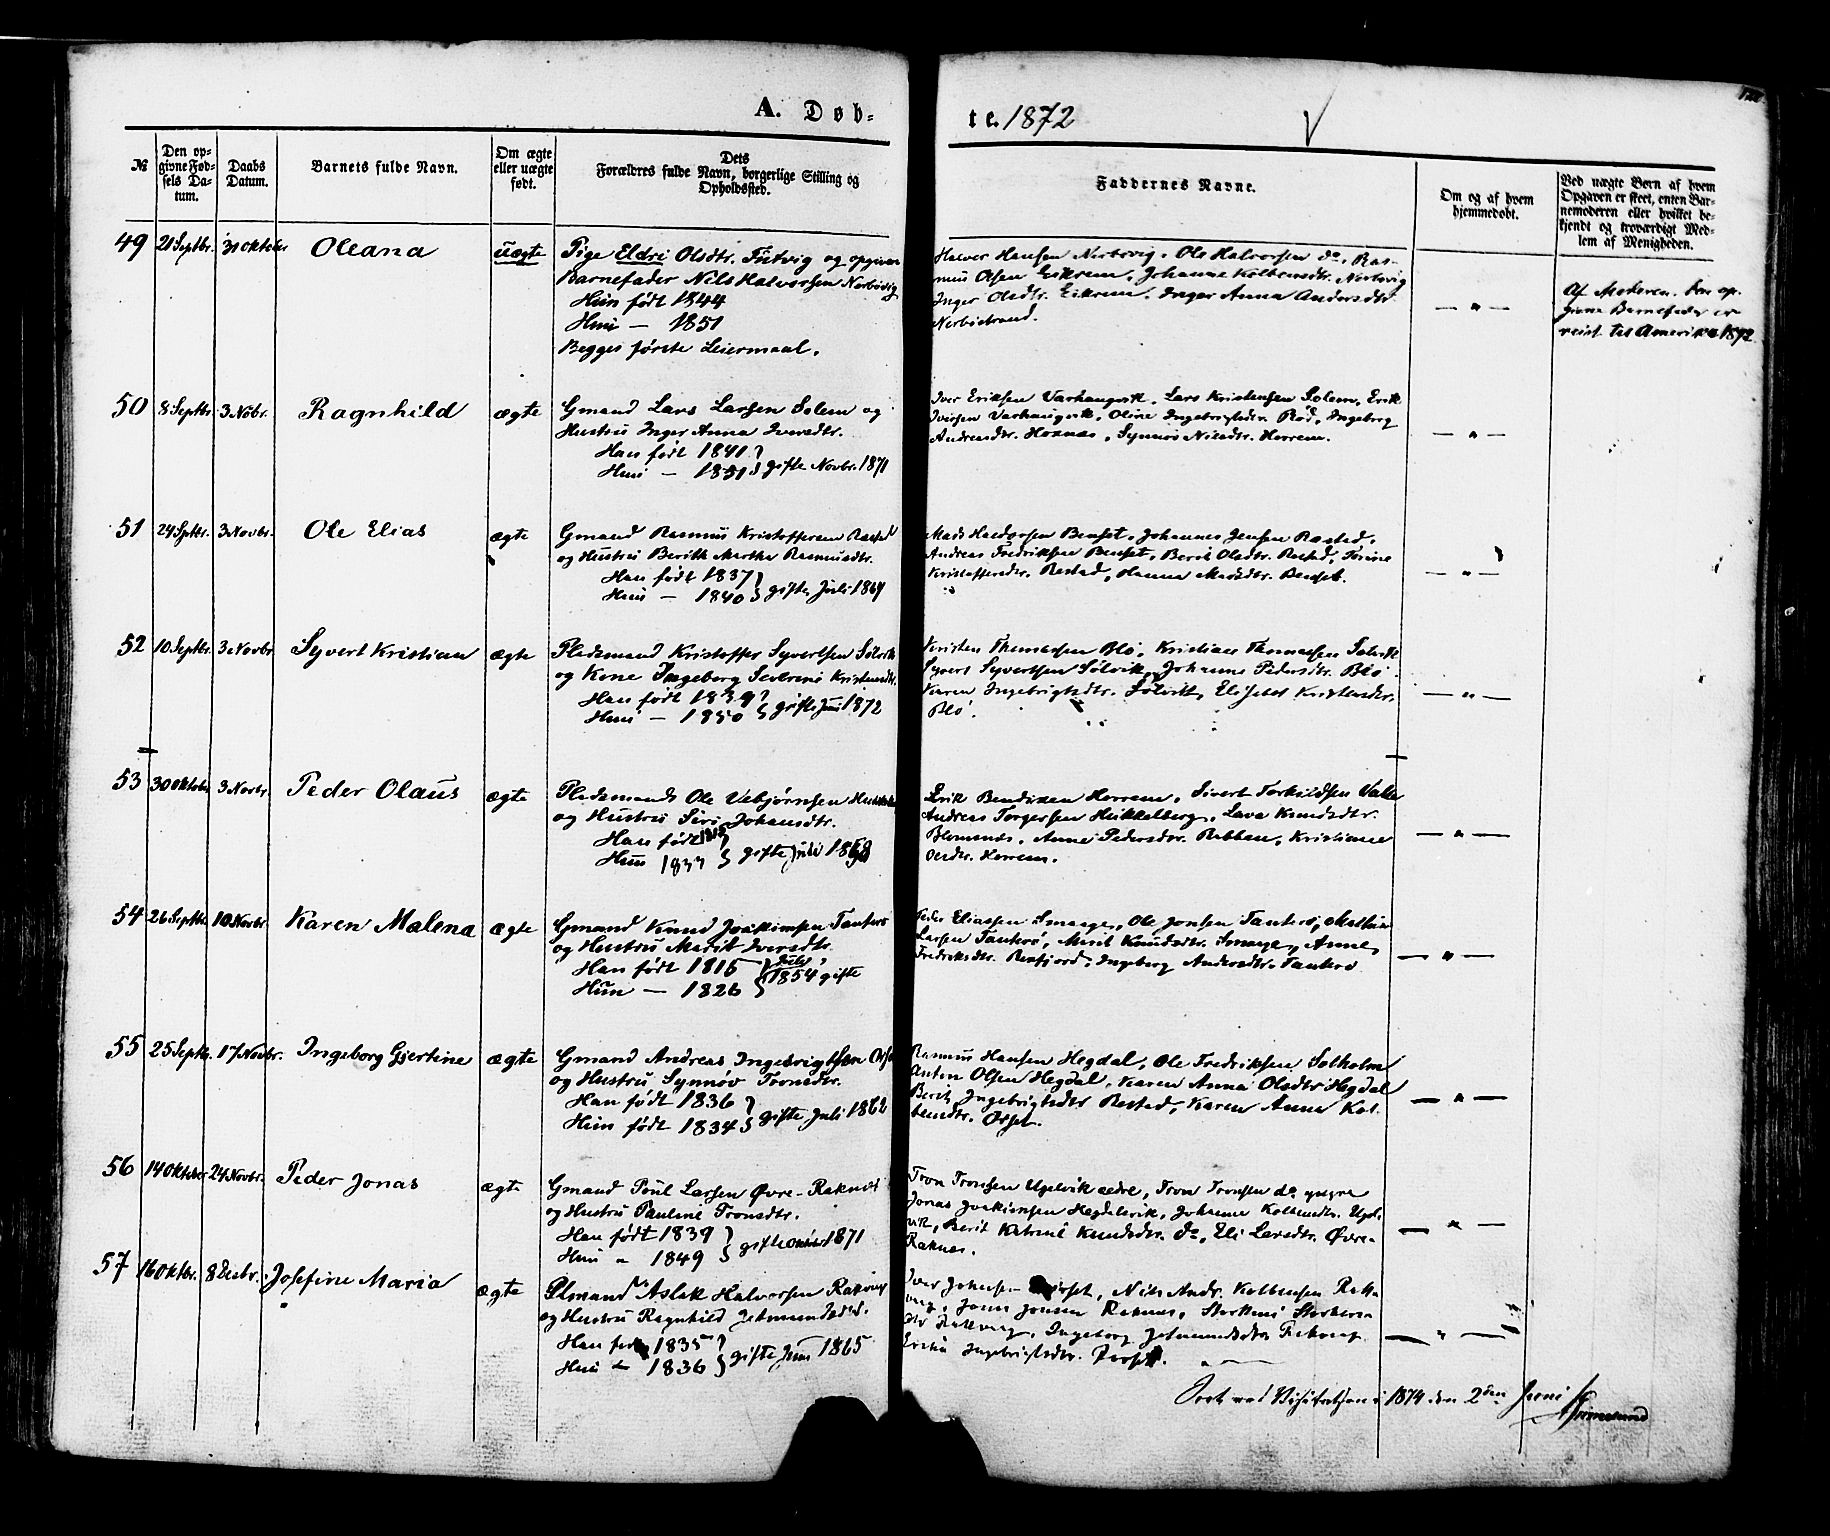 A. Døb-
te. 1872
№
Den op-
givne Fød-
sels Da-
tum.
Daabs
Datum.
Barnets fulde Navn.
Om ægte
eller uægte
født.
Dets
Forældres fulde Navn, borgerlige Stilling og
Opholdssted.
Faddernes Navne.
Om og af hvem
hjemmedøbt.
Ved uægte Børn af hvem
Opgaven er skeet, enten Bar-
nemoderen eller hvilket be-
kjendt og troværdigt Med-
lem af Menigheden.
49 21 Septbr. 31 Oktober Oleana uægte
Pige Eldri Olsdtr. og opgiven
Barnefader Nils Halvorsen Nerbøvig
Hun født 1844
1851
Begges første Leiermaal.
Halvor Hansen Nerbøvig, Ole Halvorsen do, Ras-
mus Olsen Eikrem, Johanne Kolbensdtr. Nerbøvig
Inger Olsdtr. Eikrem, Inger Anna Andersdtr.
Nerbøstrand.
— " —
Af Moderen. Den op-
givne Barnefader er
reist til Amerika 1872
50 8 Septbr. 3 Novbr. Ragnhild ægte
Gmand Lars Larsen Solem og
Hustru Inger Anna Iversdtr.
Han født 1841
Hun — 1851 gifte Novbr. 1871
Iver Eriksen Varhaugvik, Lars Kristensen Solem, Erik
Iversen Varhaugvik, Oline Ingebrigtsdtr. Rød, Ingeborg
Andreasdtr. Hoxnæs, Synnøv Nilsdtr. Herrem.
— " —
51 24 Sptbr. 3 Novbr. Ole Elias ægte
Gmand Rasmus Kristoffersen Røsted
og Hustru Berith Marthe Rasmusdtr.
Han født 1837
Hun — 1840 gifte Juli 1869
Mads Haldorsen Benset, Johannes Jensen Røsted,
Andreas Fredriksen Benset, Berit Olsdtr. Røsted,
Kristoffersdtr. Røsted, Hanna Madsdtr. Benset.
— " —
52 10 Septbr. 3 Novbr. Syvert Kristian ægte
Pladsmand Kristoffer Syvertsen Sølvik
og Kone Ingeborg Severine Kristensdtr.
Han født 1839
Hun — 1850 gifte Juni 1872
Kristen Thomassen Blø, Kristian Thomassen Sølvik
Syvert Syvertsen Sølvik, Johanne Pedersdtr. Blø
Karen Ingebrigtsdtr. Sølvik, Elisabet Kristensdtr.
Blø.
— " —
53 30 Oktober 3 Novbr. Peder Olaus ægte
Pladsmand Ole Vebjørnsen
og Hustru Siri Johansdtr.
Han født
Hun 1833 gifte Juli
Erik Bendixen Herrem, Sivert Torkildsen Valle
Andreas Torgersen Hukkelberg, Lava Knudsdtr.
Blomsnæs, Anne Pedersdtr. Rabben, Kristianne
Olsdtr. Herrem.
— " —
54 26 Septbr. 10 Novbr. Karen Malena ægte
Gmand Knud Joakimsen Tanterø
og Hustru Marit Iversdtr.
Han født 1815
Hun — 1826 1854 gifte
Peder Eliassen Smaage, Ole Jonsen Tanterø,
Larsen Tanterø, Marit Knudsdtr. Smaage, Anne
Fredriksdtr. Ingeborg Andersdtr. Tanterø
— " —
55 25 Septbr. 17 Novbr. Ingeborg Gjertine ægte
Gmand Andreas Ingebrigtsen Orset
og Hustru Synnøv Tronsdtr.
Han født 1836
Hun født 1834 gifte Juli 1862
Rasmus Hansen Hegdal, Ole Fredriksen Solholm
Anton Olsen Hegdal, Karen Anna Olsdtr. Hegdal
Berit Ingebrigtsdtr. Røsted, Karen Anne Kol-
bensdtr. Orset.
— " —
56 14 Oktober 24 Novbr. Peder Jonas ægte
Gmand Poul Larsen Øvre-Raknæs
og Hustru Pauline Tronsdtr.
Han født 1839
Hun " 1849 gifte Oktober 1871
Tron Tronsen Ugelvik ældre, Tron Tronsen do yngre
Jonas Joakimsen Hegdalsvik, Johanne Kolbensdtr. Ugel-
vik, Berit Katrine Knudsdtr. do, Eli Larsdtr. Øvre-
Raknæs.
— " —
57 16 Oktbr. 8 Desbr. Josefine Maria ægte
Plmand Aslak Halvorsen Rakvaag
og Hustru Ragnhild Jetmundsdtr.
Han født 1835
Hun — 1836 gifte Juni 1865
Iver Johnsen Nils Andr. Kolbensen Rak-
vaag, Jonsen Raknæs,
Rakvaag, Ingeborg Jetmundsdtr.
Ingebrigtsdtr.
— " —
Seet ved Visitatsen i 1874 den 2den Juni